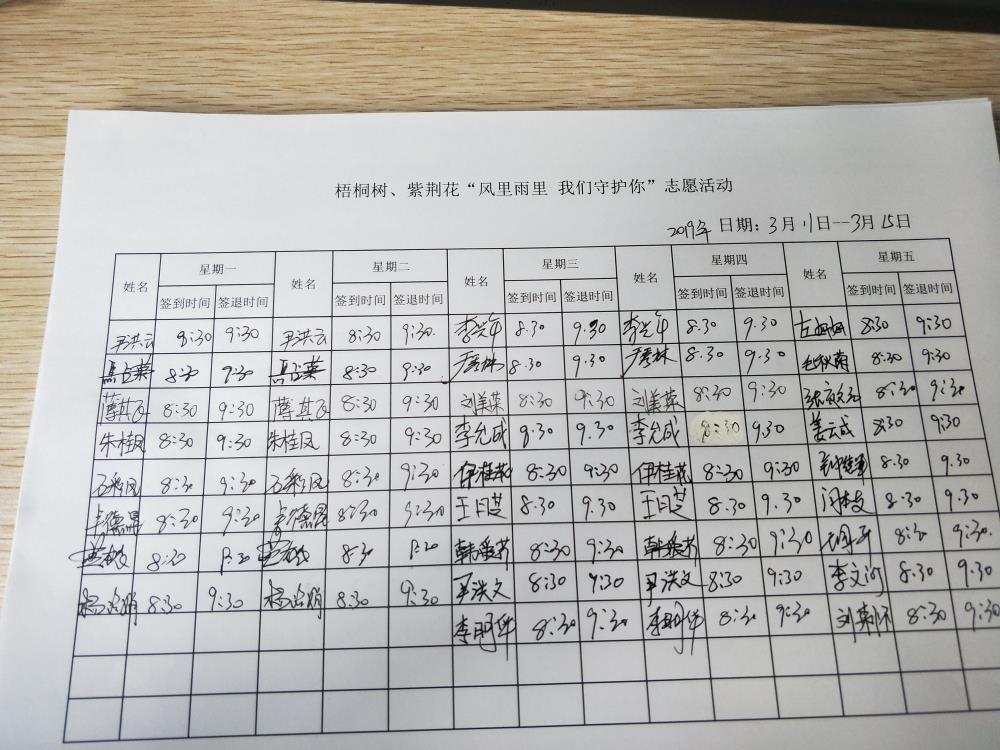 梧桐树、紫荆花“风里雨里 我们守护你”志愿活动
2019年 日期：3月11日--3月15日
姓名 星期一 姓名 星期二 姓名 星期三 姓名 星期四 姓名 星期五
签到时间 签退时间 签到时间 签退时间 签到时间 签退时间 签到时间 签退时间 签到时间 签退时间
尹洪云 8:30 9:30 尹洪云 8:30 9:30. 8.30 9.30 8.30 9.30 8:30 9:30
8:30 9:30 8:30 9:30 8:30 9:30 8:30 9:30 毛秋菊 8:30 9:30
薛其飞 8:30 9:30 薛其飞 8:30 9:30 刘美荣 8:30 9:30 刘美荣 8:30 9:30 8:30 9:30
朱桂凤 8:30 9.30 朱桂凤 8:30 9:30 李允成 8:30 9.30 李允成 8:30 9.30 姜云成 8:30 9:30
石彩凤 8:30 9:30 石彩凤 8:30 9:30 伊桂花 8:30 9:30 伊桂花 8:30 9:30 8.30 9.30
卓德昌 8:30 9:30 卓德昌 8:30 9:30 王月芝 8:30 9.30 王月芝 8:30 9.30 8:30 9:30
8:30 8:30 韩爱芥 8:30 9:30 韩爱芥 8:30 9:30 8:30 9:30.
8:30 9:30 8:30 9:30 尹洪文 8:30 9:30 尹洪文 8:30 9:30 李文河 8:30 9:30
李明华 8:30 9:30 李明华 8:30 9:30 8:30 9:30